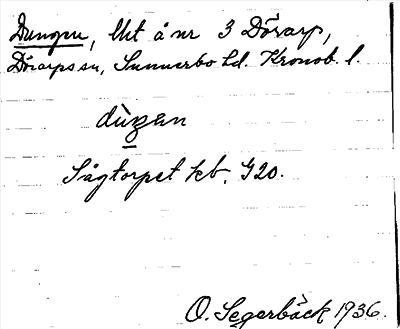 Dungen, Mt å nr 3 Dörarp,
Dörarps sn, Sunnerbo hd. Kronob. l.
dùgen
Sågtorpet kb. G20.
O. Segerbäck 1936.